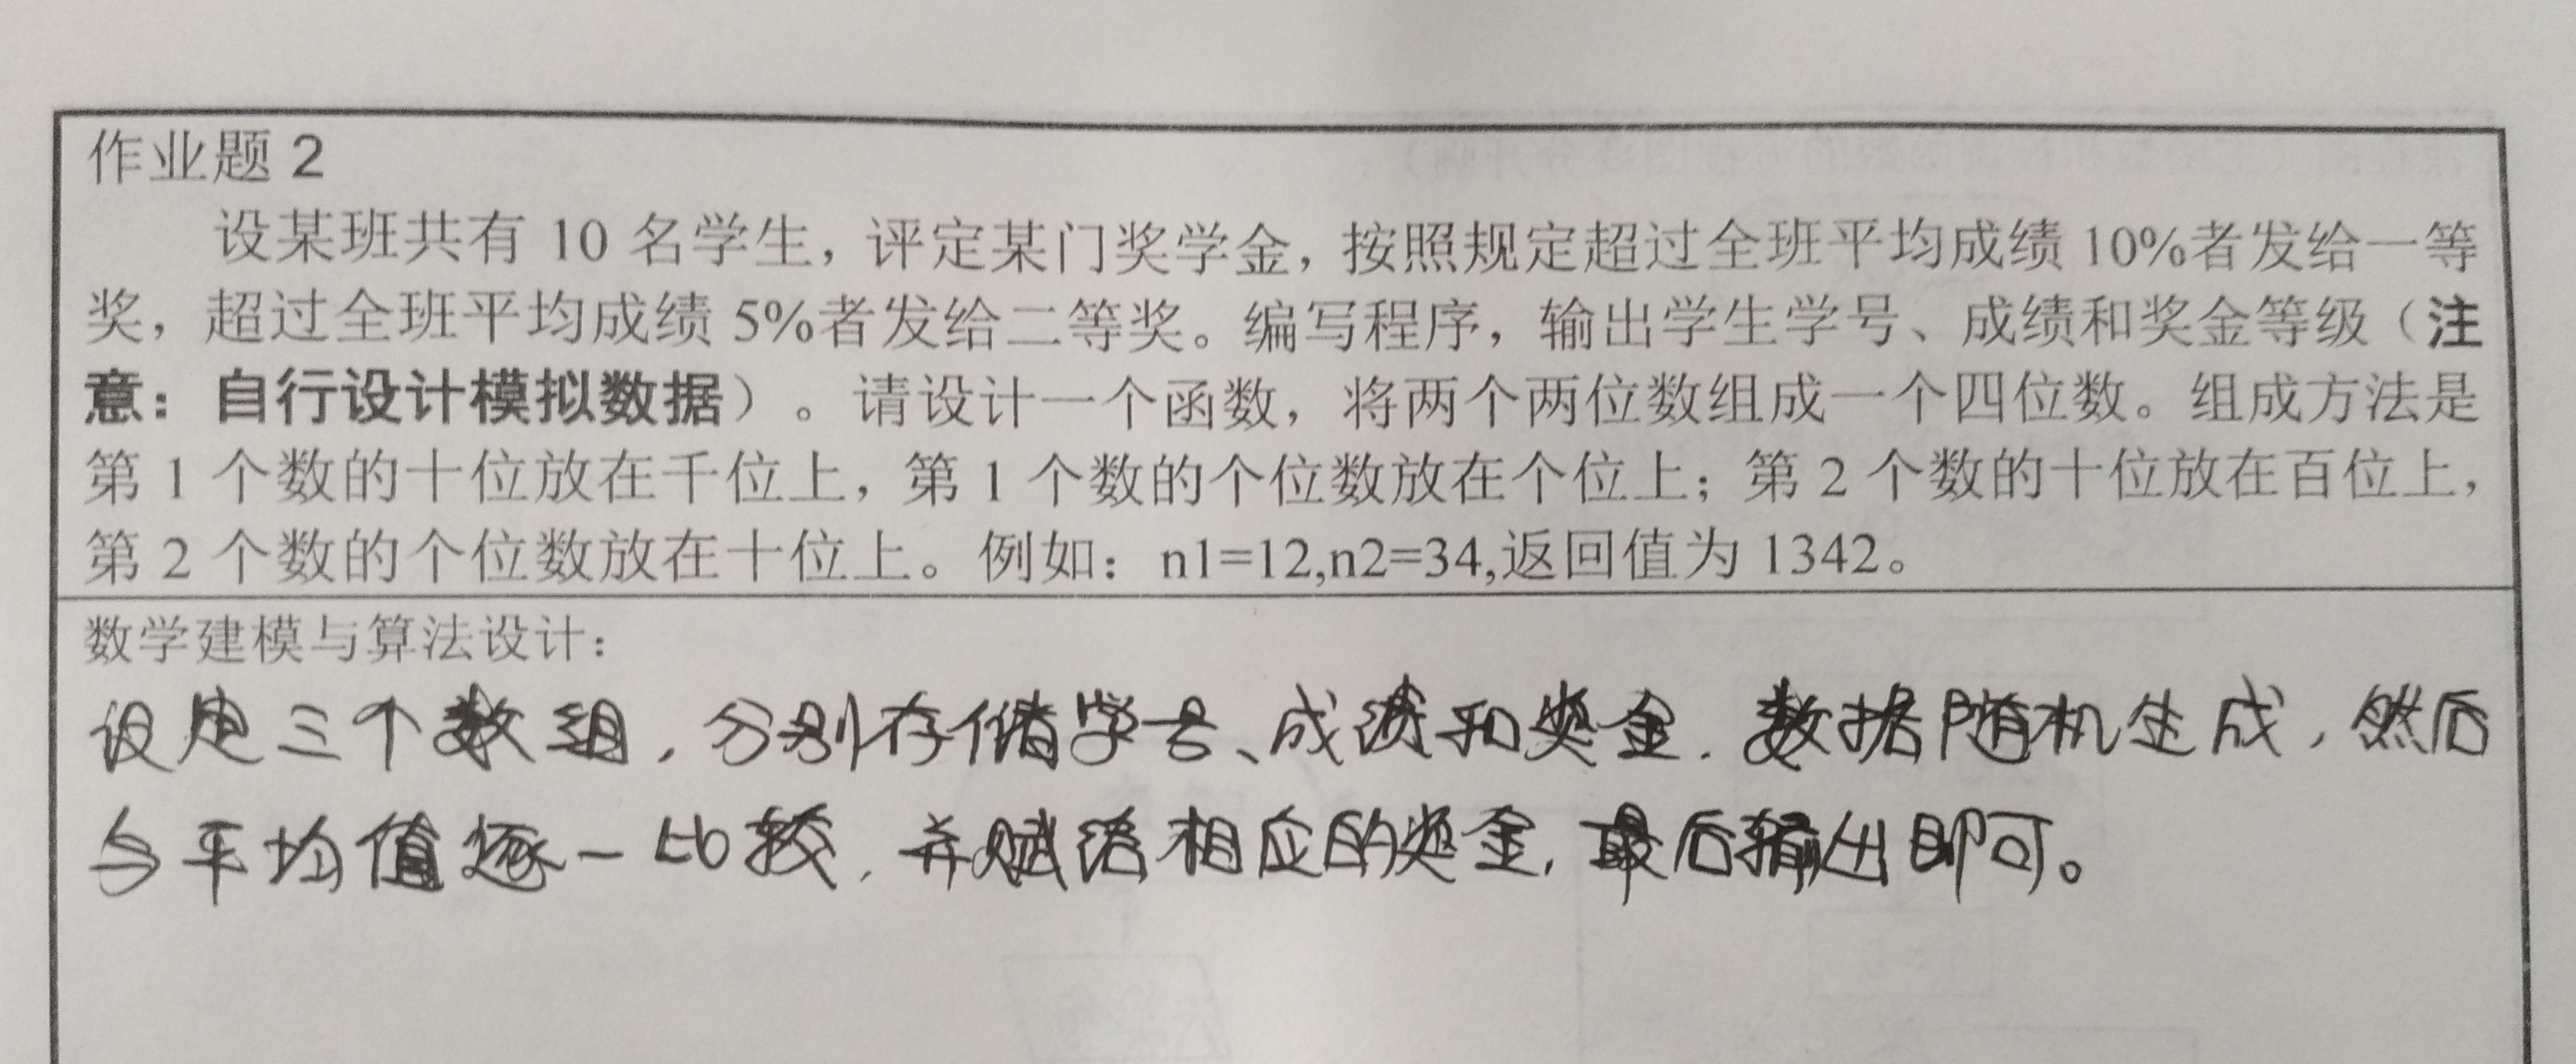 作业题 2
设某班共有 10 名学生，评定某门奖学金，按照规定超过全班平均成绩 10%者发给一等
奖，超过全班平均成绩 5%者发给二等奖。编写程序，输出学生学号、成绩和奖金等级（注
意：自行设计模拟数据）。请设计一个函数，将两个两位数组成一个四位数。组成方法是
第 1 个数的十位放在千位上，第 1 个数的个位数放在个位上；第 2 个数的十位放在百位上，
第 2 个数的个位数放在十位上。例如：n1=12,n2=34,返回值为 1342。
数学建模与算法设计：
设定三个数组，分别存储学号、成绩和奖金．数据随机生成，然后
与平均值逐一比较，并赋给相应的奖金，最后输出即可。